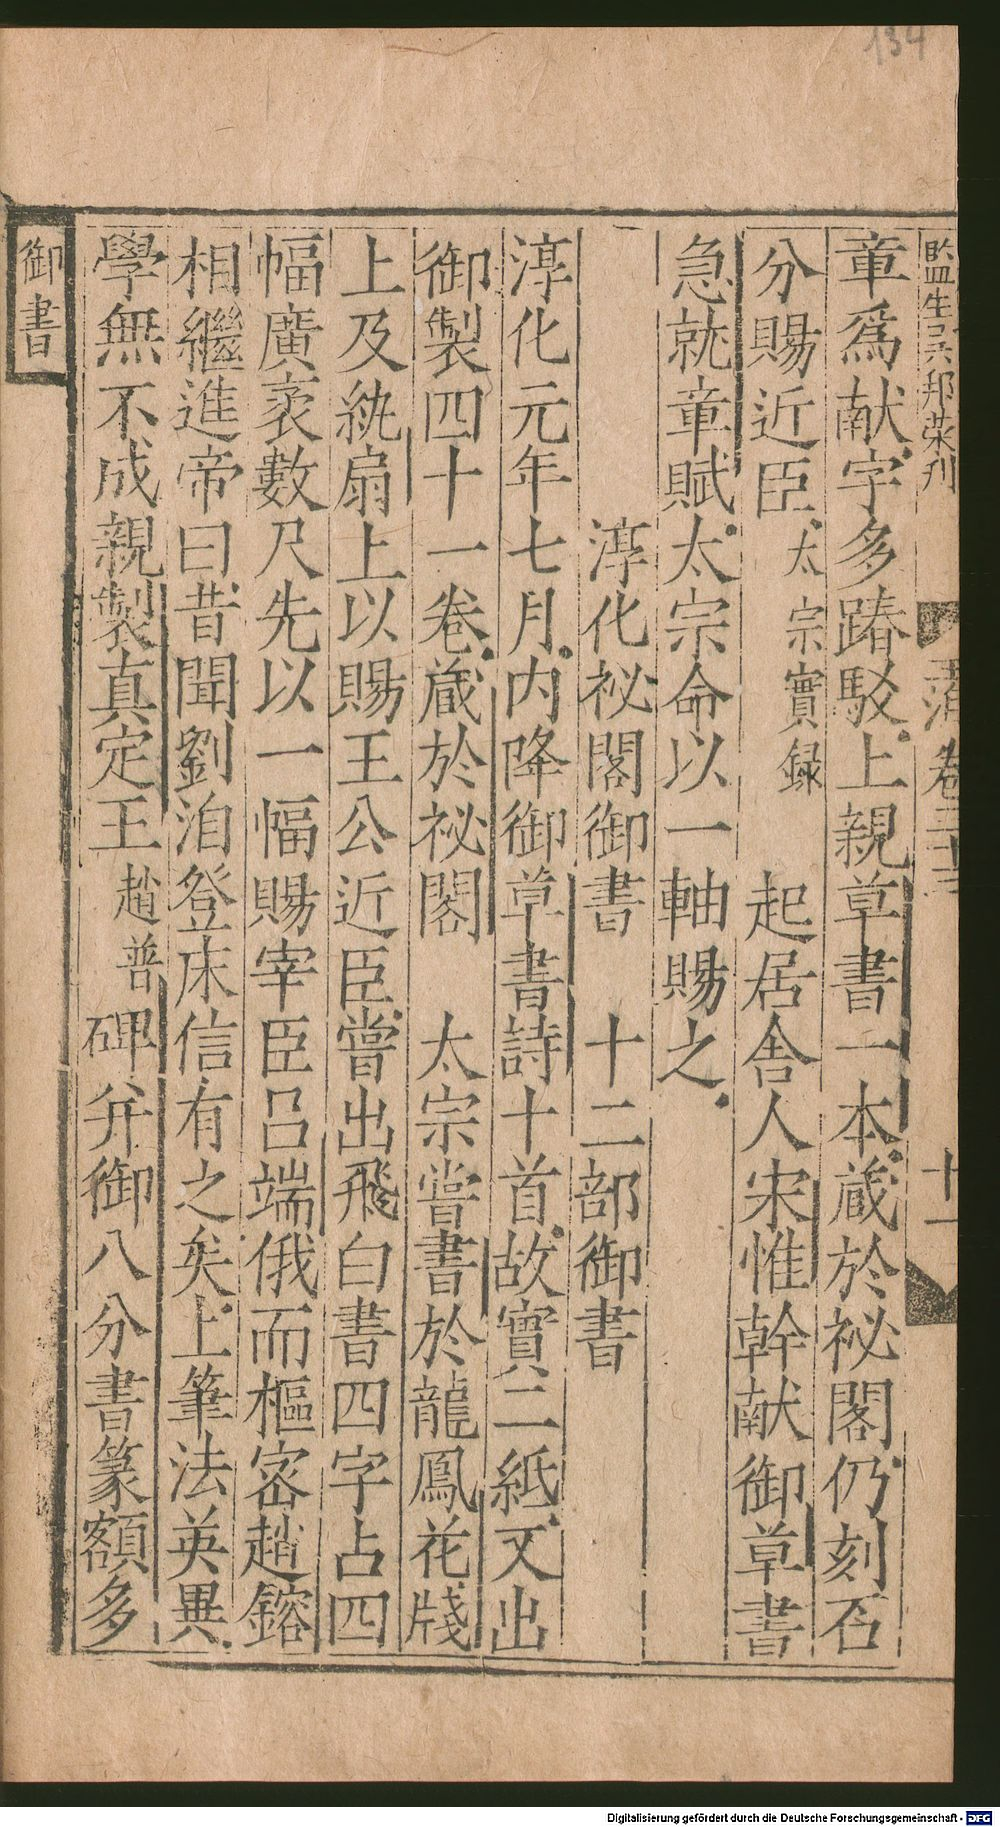 134
監生吳邦荣刋
玉海卷三十三
十一
章爲献字多踳駁上親草書一本蔵於祕閣仍刻石
分賜近臣太宗實録 起居舎人宋惟幹献御草書
急就章賦太宗命以一軸賜之
淳化祕閣御書 十二部御書
淳化元年七月内降御草書詩十首故實二紙又出
御製四十一卷蔵於祕閣 太宗嘗書於龍鳳花牋
上及紈扇上以賜王公近臣嘗出飛白書四字占四
幅廣袤數尺先以一幅賜宰臣吕端俄而樞密趙鎔
相繼進帝曰昔聞劉洎登床信有之矣上筆法英異
學無不成親製真定王趙普碑并御八分書篆額多
御書
Digitalisierung gefördert durch die Deutsche Forschungsgemeinschaft - DFG